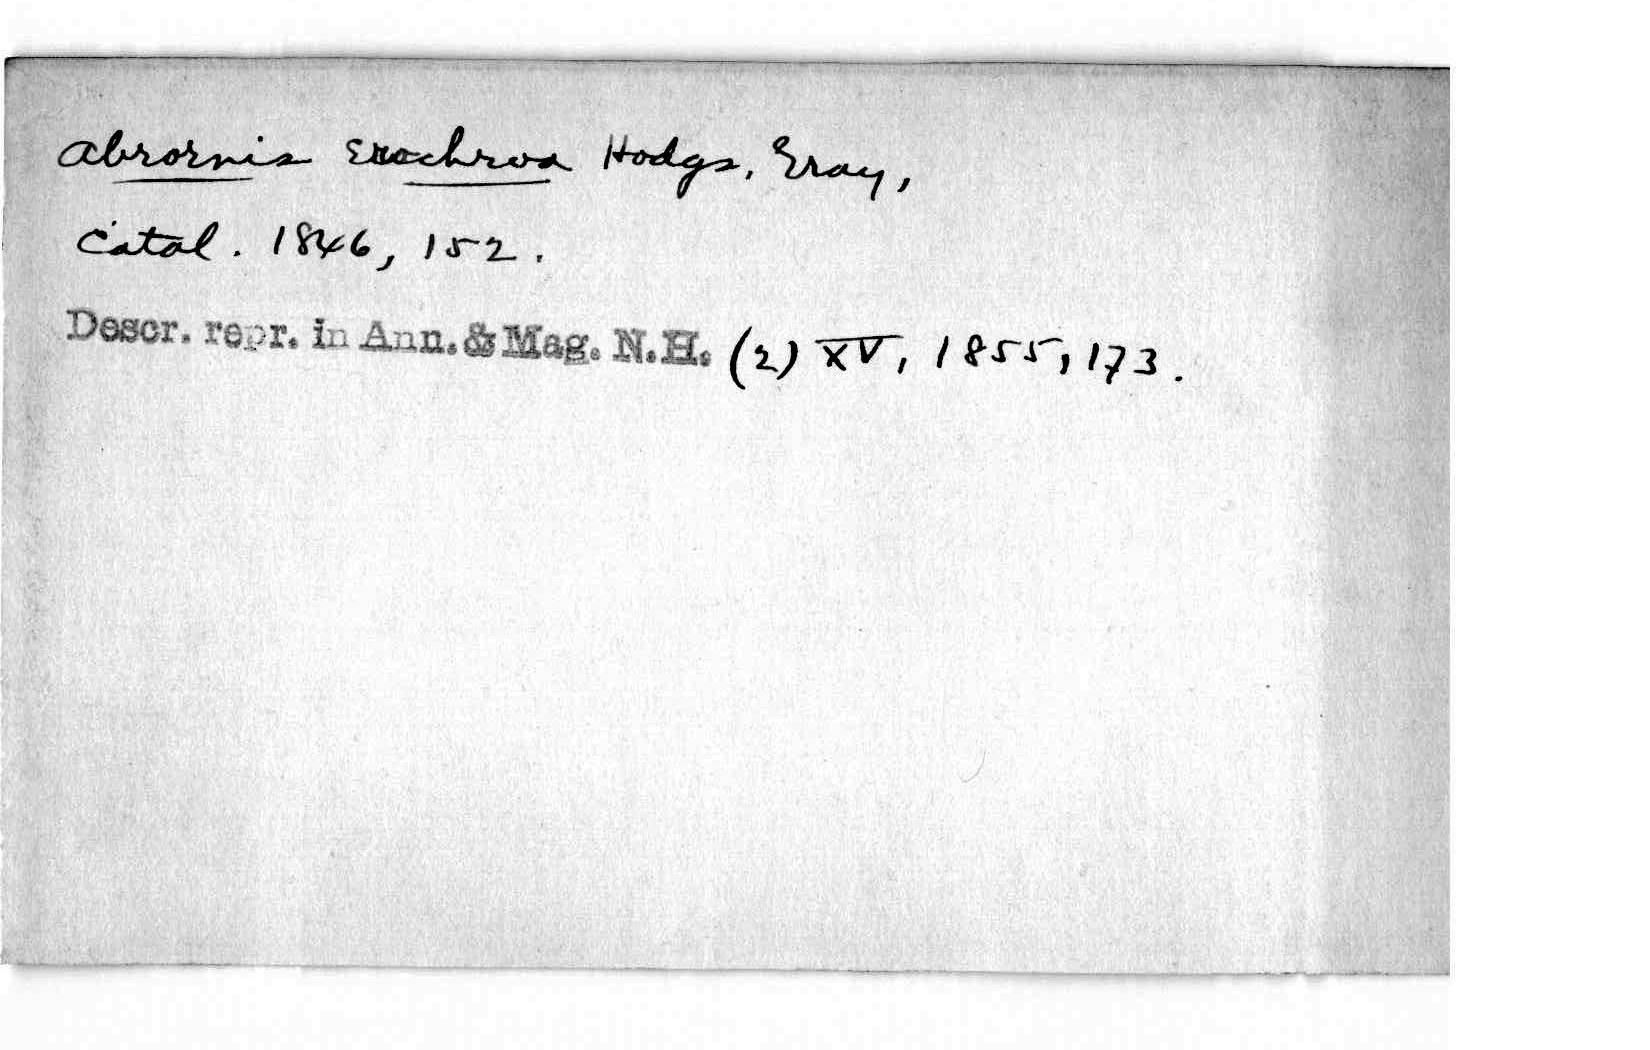 Abrornis erochroa Hodgs, Gray,
Catal. 1846, 152.
Descr. repr. in Ann. & Mag. N.H. (2) XV, 1855, 173.